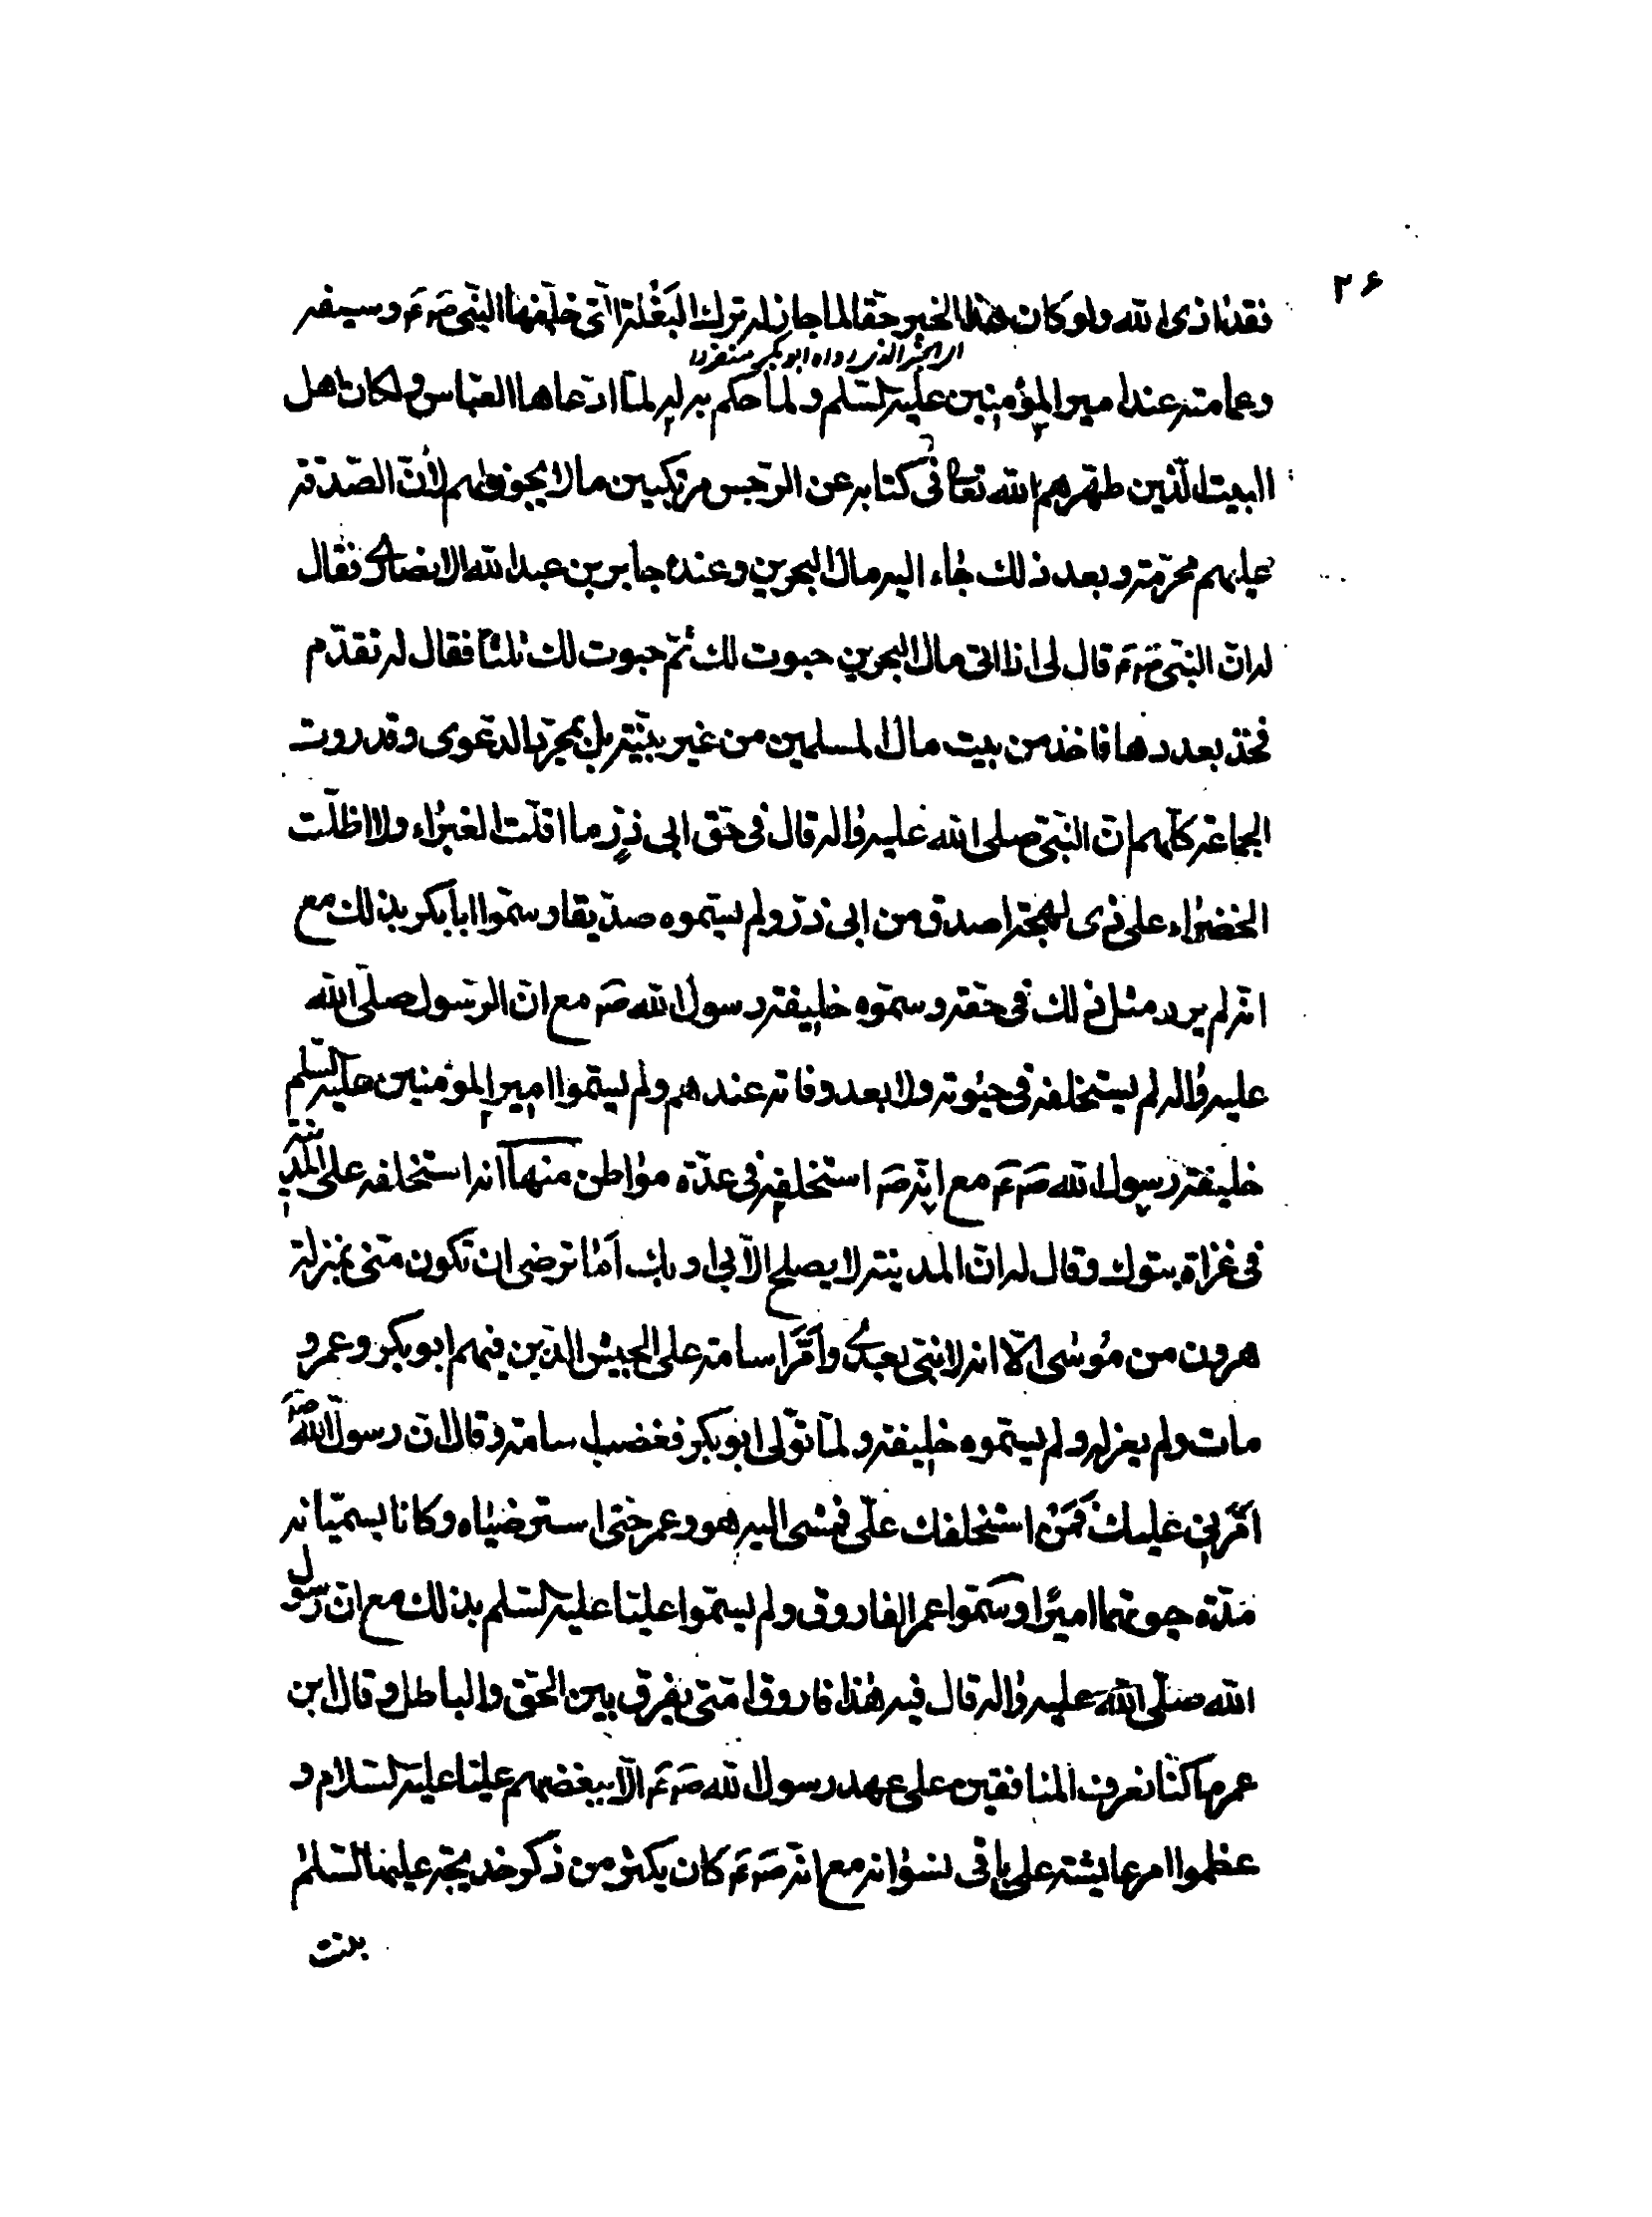 ۲۶
فقد اذى الله ولو كان هذا الخبر حقا لما جاز له ترك البغلة التى خلفها النبى ص ع و سيفه
اى الخبر الذى رواه ابو بكر منفردا
وعمامته عند امير المؤمنين عليه السلم ولما حكم به له لما ادعاها العباس ولكان اهل
البيت الذين طهرهم الله تعا فى كتابه عن الرجس مرتكبين ما لا يجوز لهم لأن الصدقة
عليهم محرمة و بعد ذلك جاء اليه مال البحرين وعنده جابر بن عبد الله الانصارى فقال
له ان النبى ص ع قال لى اذا اتى مال البحرين حبوت لك ثم حبوت لك ثلثا فقال له تقدم
فخذ بعددها فاخذ من بيت مال المسلمين من غير بينة بل بمجرد الدعوى وقد روت
الجماعة كلهم ان النبى صلى الله عليه واله قال فى حق ابى ذر ما اقلت الغبراء ولا اظلت
الخضراء على ذى لهجة اصدق من ابى ذر ولم يسموه صديقا وسموا ابا بكر بذلك مع
انه لم يرد مثل ذلك فى حقه وسموه خليفة رسول الله ص مع ان الرسول صلى الله
عليه واله لم يستخلفه فى حيوته ولا بعد وفاته عندهم ولم يسموا امير المؤمنين عليه السلم
خليفة رسول الله ص ع مع انه ص استخلفه فى عدة مواطن منها انه استخلفه على المدينة
فى غزاة تبوك وقال له ان المدينة لا يصلح الا بى او بك اما ترضى ان تكون منى بمنزلة
هرون من موسى الا انه لا نبى بعدى وامر اسامة على الجيش الذين فيهم ابو بكر وعمر و
مات ولم يعزله ولم يسموه خليفة ولما تولى ابو بكر فغضب اسامة وقال ان رسول الله ص
امرنى عليك فمن استخلفك على فمشى اليه هو وعمر حتى استرضياه وكانا يسميانه
مدة حيوتهما اميرا وسموا عمر الفاروق ولم يسموا عليا عليه السلم بذلك مع ان رسول
الله صلى الله عليه واله قال فيه هذا فاروق امتى يفرق بين الحق والباطل وقال ابن
عمر ما كنا نعرف المنافقين على عهد رسول الله ص ع الا ببغضهم عليا عليه السلام و
عظموا امر عايشة على باقى نسوانه مع انه ص ع كان يكثر من ذكر خديجة عليها السلم
بنت